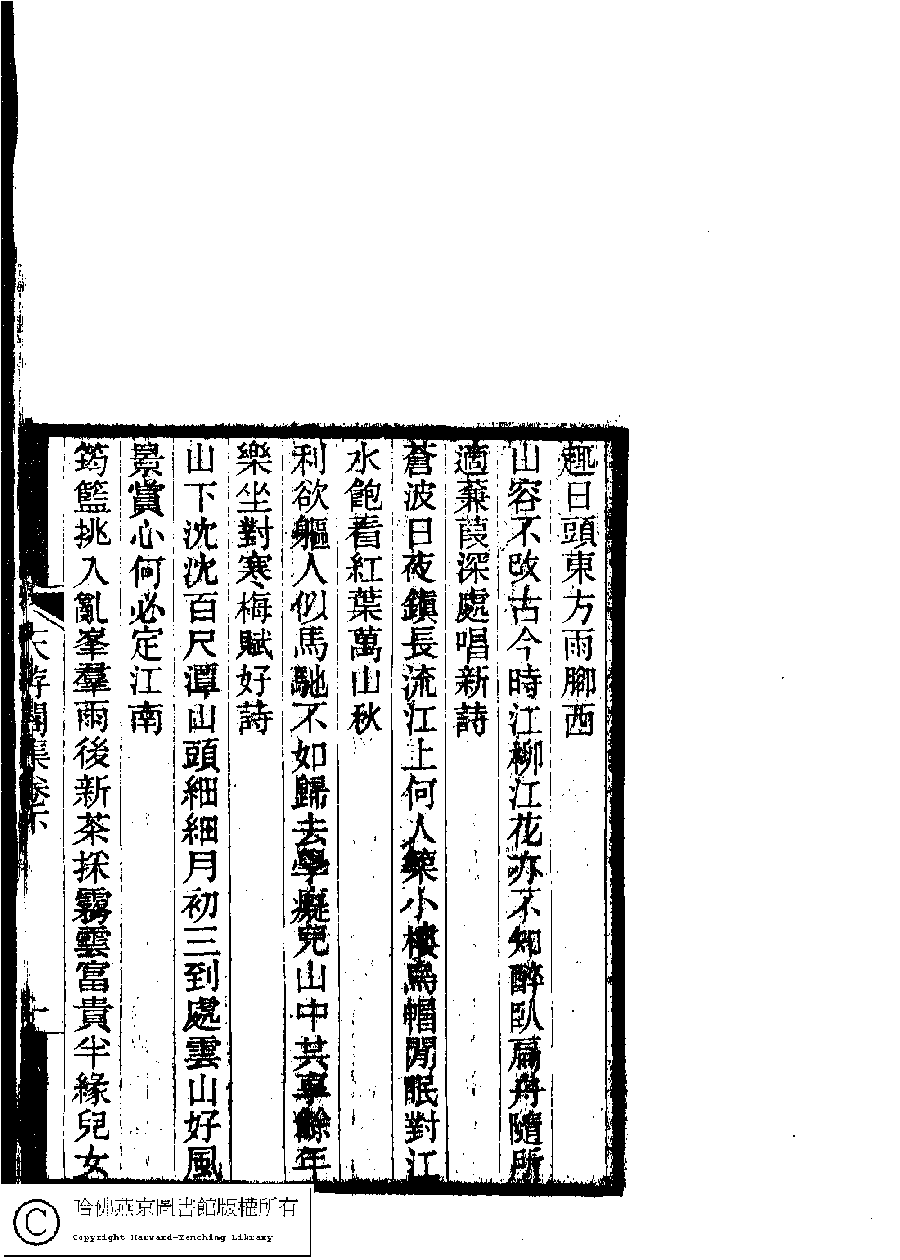 趣日頭東方雨腳西
山容不改古今時江柳江花亦不知醉臥扁舟隨所
適蒹葭深處唱新詩
蒼波日夜鎮長流江上何人築小樓烏帽閒眠對江
水飽看紅葉萬山秋
利欲軀人似馬馳不如歸去學癡兒山中共享餘年
樂坐對寒梅賦好詩
山下沈沈百尺潭山頭細細月初三到處雲山好風
景賞心何必定江南
筠籃挑入亂峯羣雨後新茶採霧雲富貴半緣兒女
天游閣集卷下
哈佛燕京圖書館版權所有
Copyright Harvard-Yenching Library